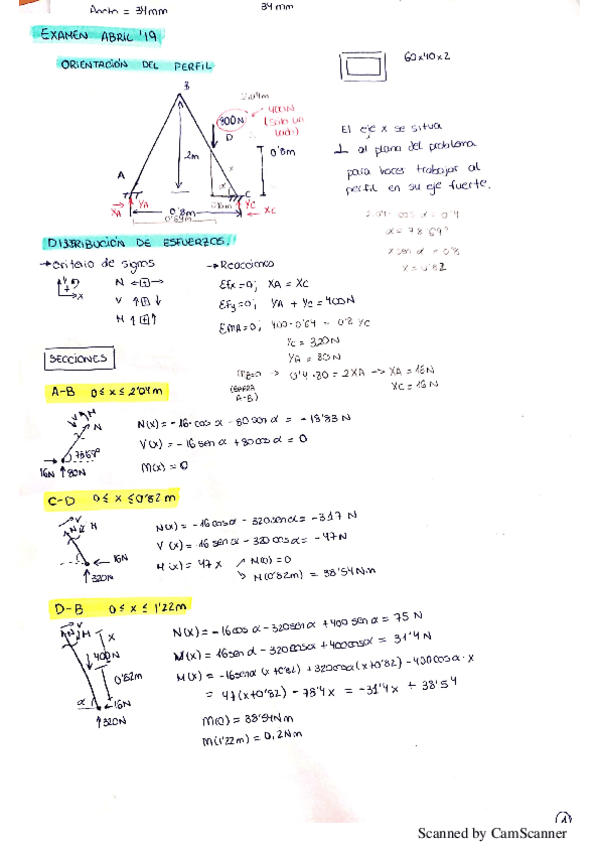 Ancho = 34mm
34 mm
EXAMEN ABRIL '19
ORIENTACIÓN DEL PERFIL
60x40x2
B
2'04m
400N
(Solo un lado)
800N
D
2m
0'8m
A
x
α
C
XA
YA
YC
XC
0'8m
0'64m
El eje x se situa
⊥ al plano del problema
para hacer trabajar al
perfil en su eje fuerte.
2'04 · cos α = 0'4
α = 78'69º
x sen α = 0'8
x = 0'82
DISTRIBUCIÓN DE ESFUERZOS.
→ Criterio de signos
→ Reacciones
N
V
M
x
ΣFx=0; XA = XC
ΣFy=0; YA + YC = 400N
ΣMA=0; 400·0'64 = 0'8 YC
YC = 320N
YA = 80N
(BARRA A-B)
→ 0'4·80 = 2XA → XA = 16N
XC = 16N
SECCIONES
A-B 0 ≤ x ≤ 2'04m
N(x) = -16·cos α - 80 sen α =
V(x) = -16 sen α + 80 cos α = 0
M(x) = 0
16N
80N
C-D 0 ≤ x ≤ 0'82 m
N(x) = -16 cos α - 320 sen α = -317 N
V(x) = 16 sen α - 320 cos α = -47N
M(x) = 47x
M(0) = 0
M(0'82m) = 38'54 N·m
16N
320N
D-B 0 ≤ x ≤ 1'22m
N(x) = -16 cos α - 320 sen α + 400 sen α = 75 N
= 31'4 N
M(x) = -16 sen α (x+0'82) + 320 cos α (x+0'82) - 400 cos α · x
= 47(x+0'82) - 78'4x = -31'4x + 38'54
M(0) = 38'54Nm
M(1'22m) = 0,2Nm
x
400N
0'82m
α
16N
320N
Scanned by CamScanner